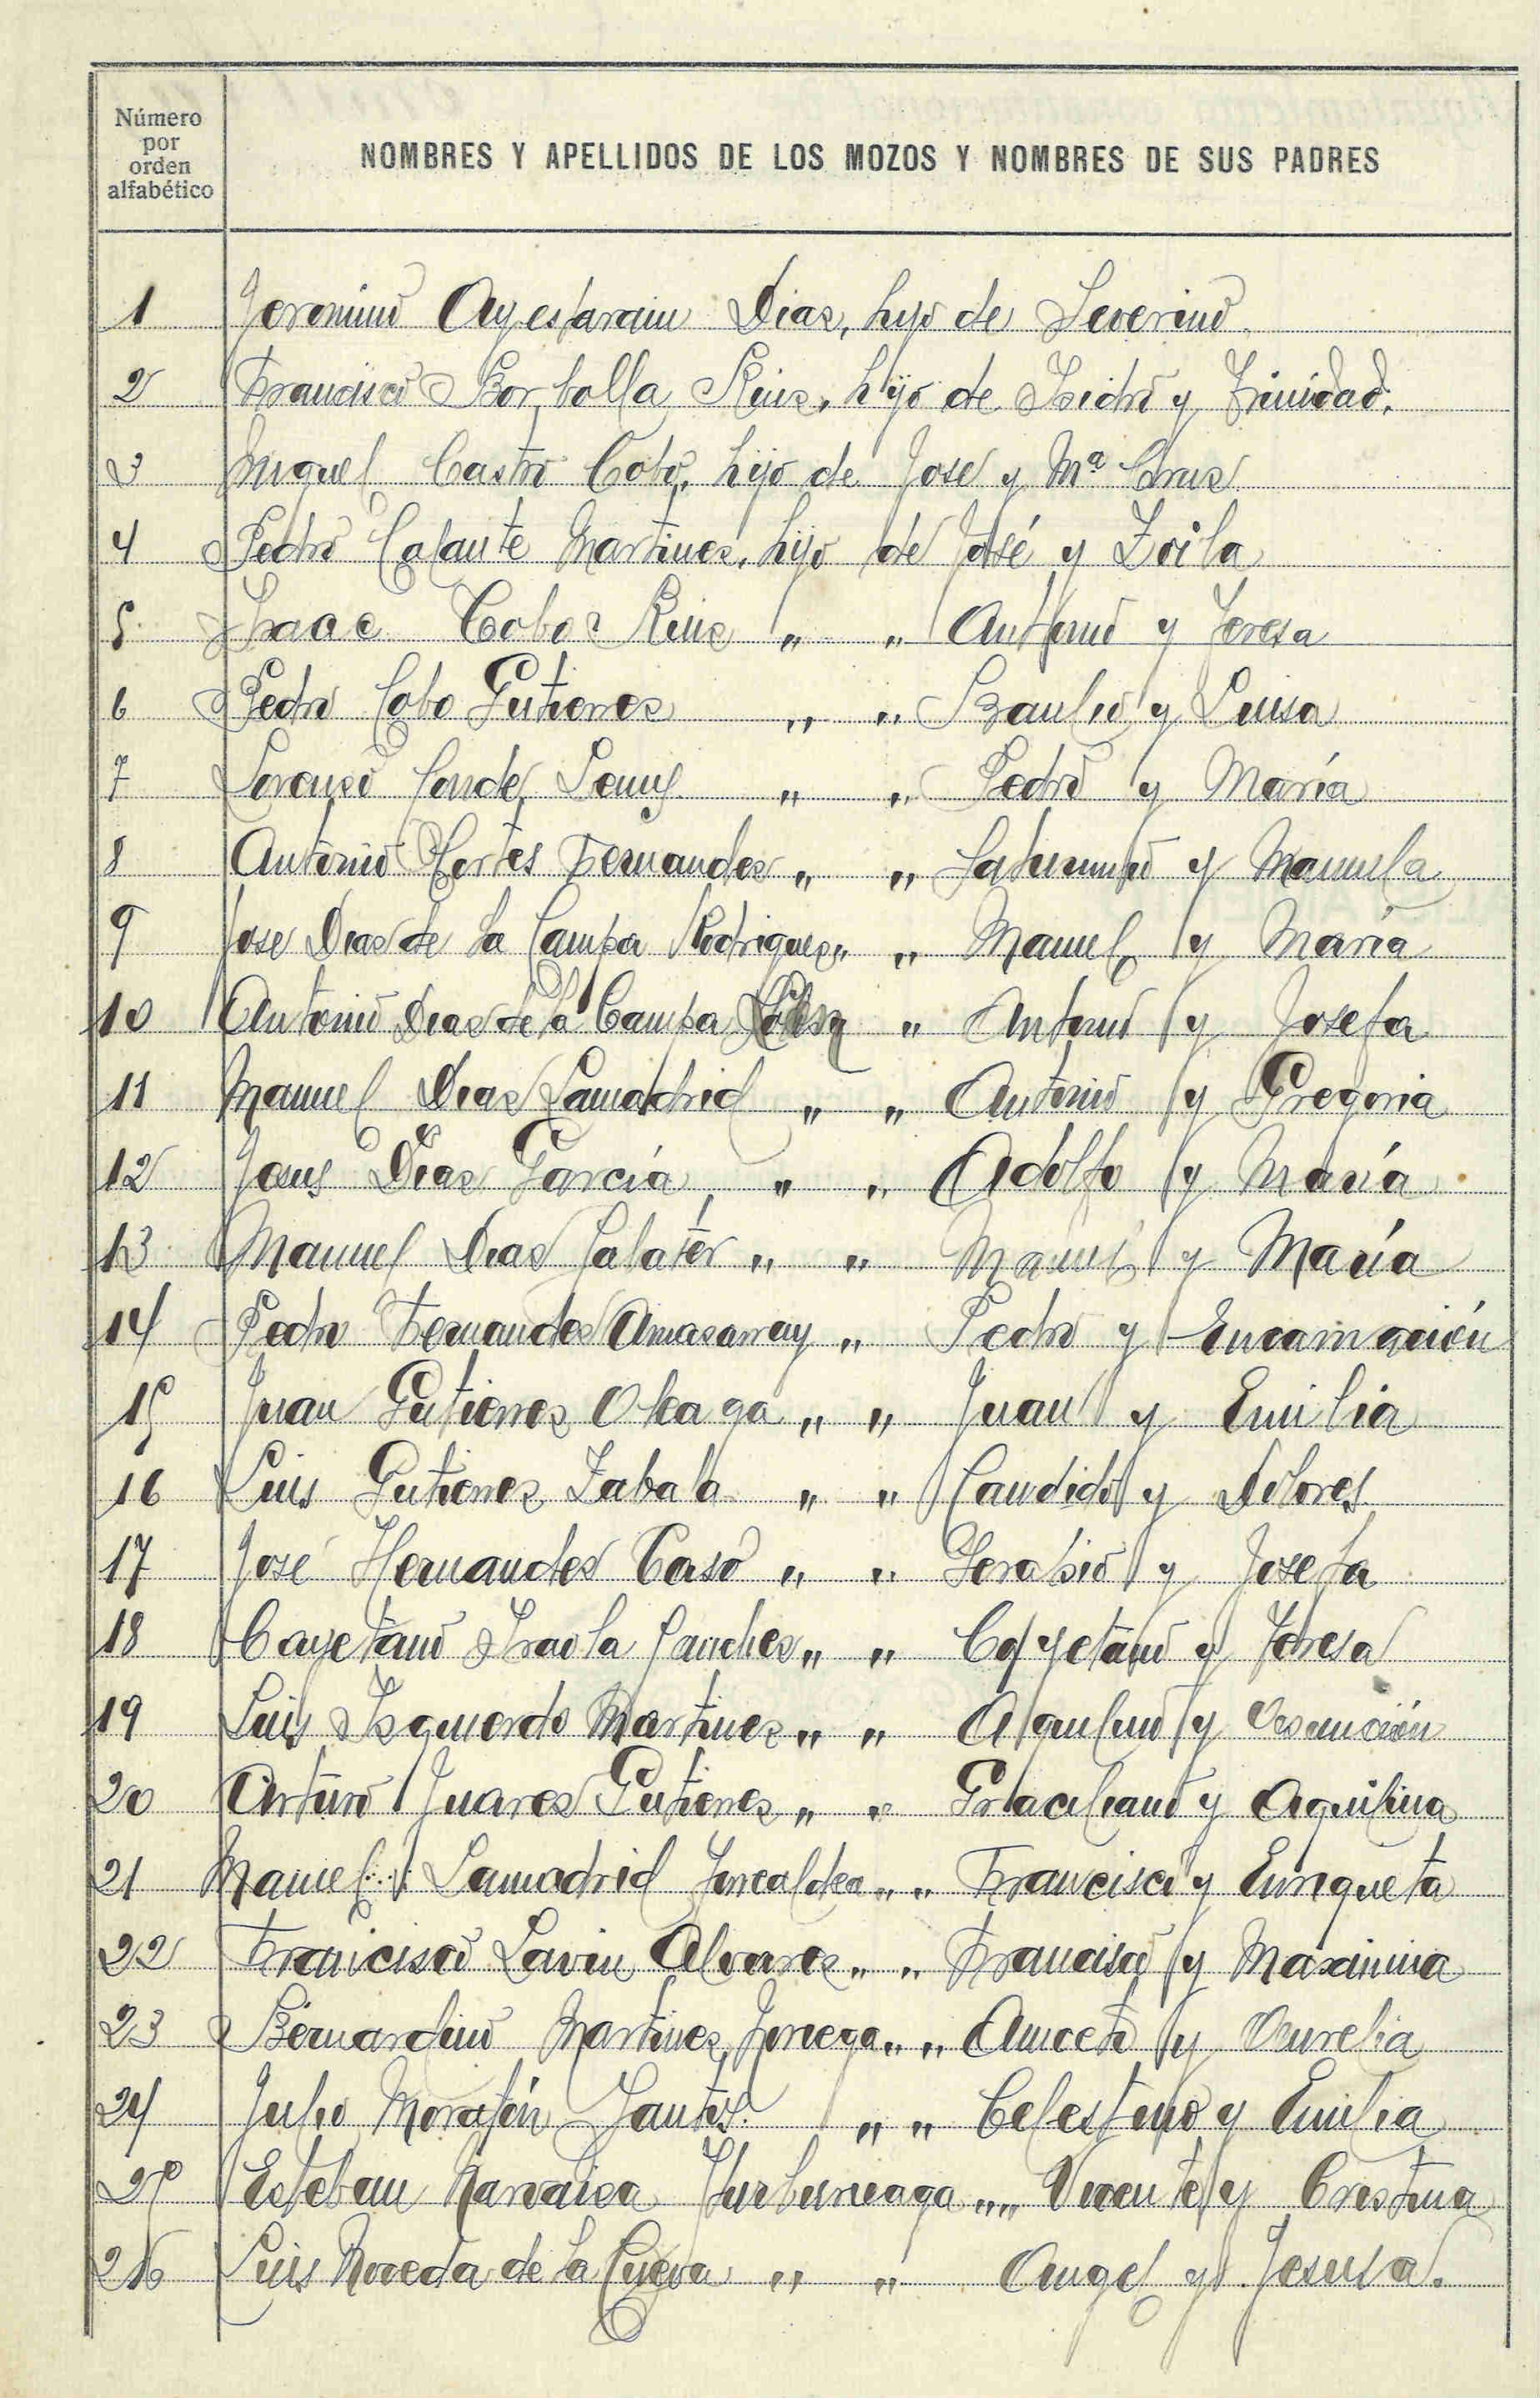 Número
por
orden
alfabético
NOMBRES Y APELLIDOS DE LOS MOZOS Y NOMBRES DE SUS PADRES
1 Jeronimo Ayestarain Dias, hijo de Severino.
2 Francisco Borbolla Ruiz, hijo de Isidro y Trinidad.
3 Miguel Castro Cobo, hijo de Jose y Mª Cruz
4 Pedro Calante Martinez, hijo de José y Zoila
5 Isaac Cobo Ruiz " " Antonio y Teresa
6 Pedro Cobo Gutierrez " " Braulio y Luisa
7 Lorenzo Conde " " Pedro y María
8 Antonio Cortes Fernandez " " Saturnino y Manuela
9 Jose Diaz de la Campa Rodriguez " " Manuel y María
10 Antonio Diaz de la Campa " Antonio y Josefa
11 Manuel Diaz Lamadrid " " Antonio y Gregoria
12 Jesus Diaz García " " Adolfo y María
13 Manuel Diaz " " Manuel y María
14 Pedro Fernandez Amasarray " Pedro y Encarnación
15 Juan Gutierrez Oleaga " " Juan y Emilia
16 Luis Gutierrez Zabala " " Candido y Dolores
17 José Hernandez Caso " " Serapio y Josefa
18 Cayetano Iraola Sanchez " " Cayetano y Teresa
19 Luis Izquierdo Martinez " " Aquilino y
20 Arturo Juarez Gutierrez " " Graciliano y Aquilina
21 Manuel Lamadrid " " Francisco y Enriqueta
22 Francisco Lavin Alvarez " " Francisco y Maximina
23 Bernardino Martinez Noriega " " Aniceto y Aurelia
24 Julio Moratón Santos. " " Celestino y Emilia
25 Esteban Narvaiza " " Vicente y Cristina
26 Luis Noceda de la Cueva " " Angel y Jesusa.